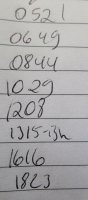 0521
0649
0844
1029
1208
1315-13h
1616
1823